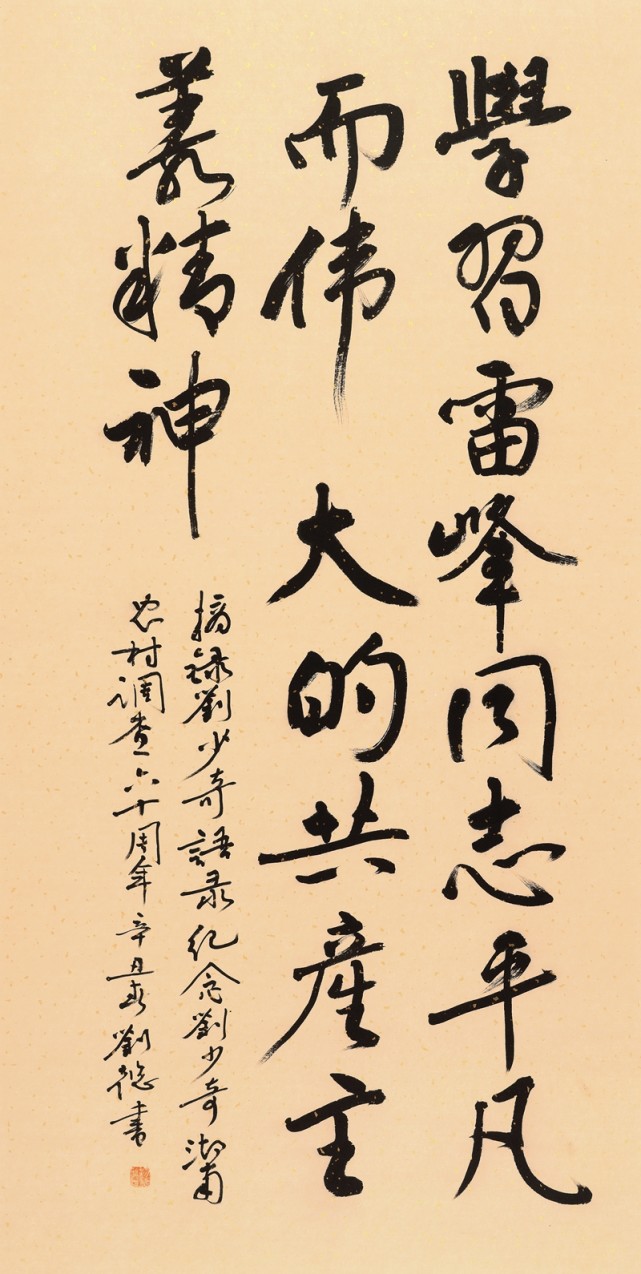 學習雷峰同志平凡
而伟大的共產主
義精神
摘録劉少奇語录纪念劉少奇湖南
农村调查六十周年辛丑春劉德书